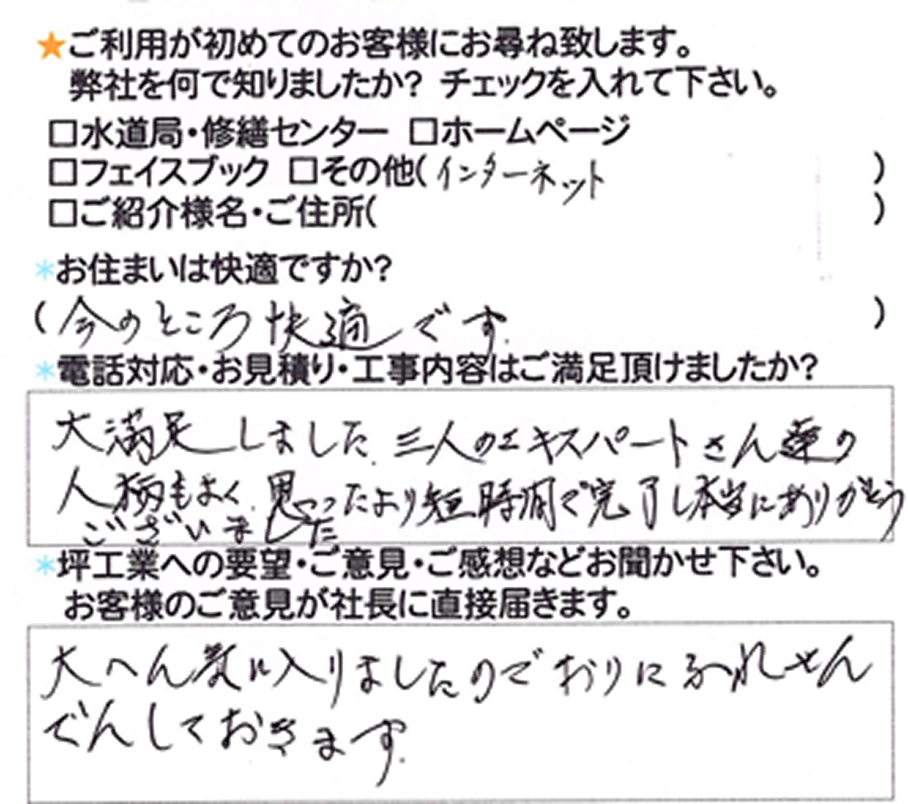 ★ご利用が初めてのお客様にお尋ね致します。
弊社を何で知りましたか? チェックを入れて下さい。
□水道局・修繕センター □ホームページ
□フェイスブック □その他(インターネット)
□ご紹介様名・ご住所( )
*お住まいは快適ですか?
(今のところ快適です。)
*電話対応・お見積り・工事内容はご満足頂けましたか?
大満足しました。三人のエキスパートさん達の
人柄もよく、思ったより短時間で完了し本当にありがとう
ございました
*坪工業への要望・ご意見・ご感想などお聞かせ下さい。
お客様のご意見が社長に直接届きます。
大へん気に入りましたのでおりにふれせん
でんしておきます。